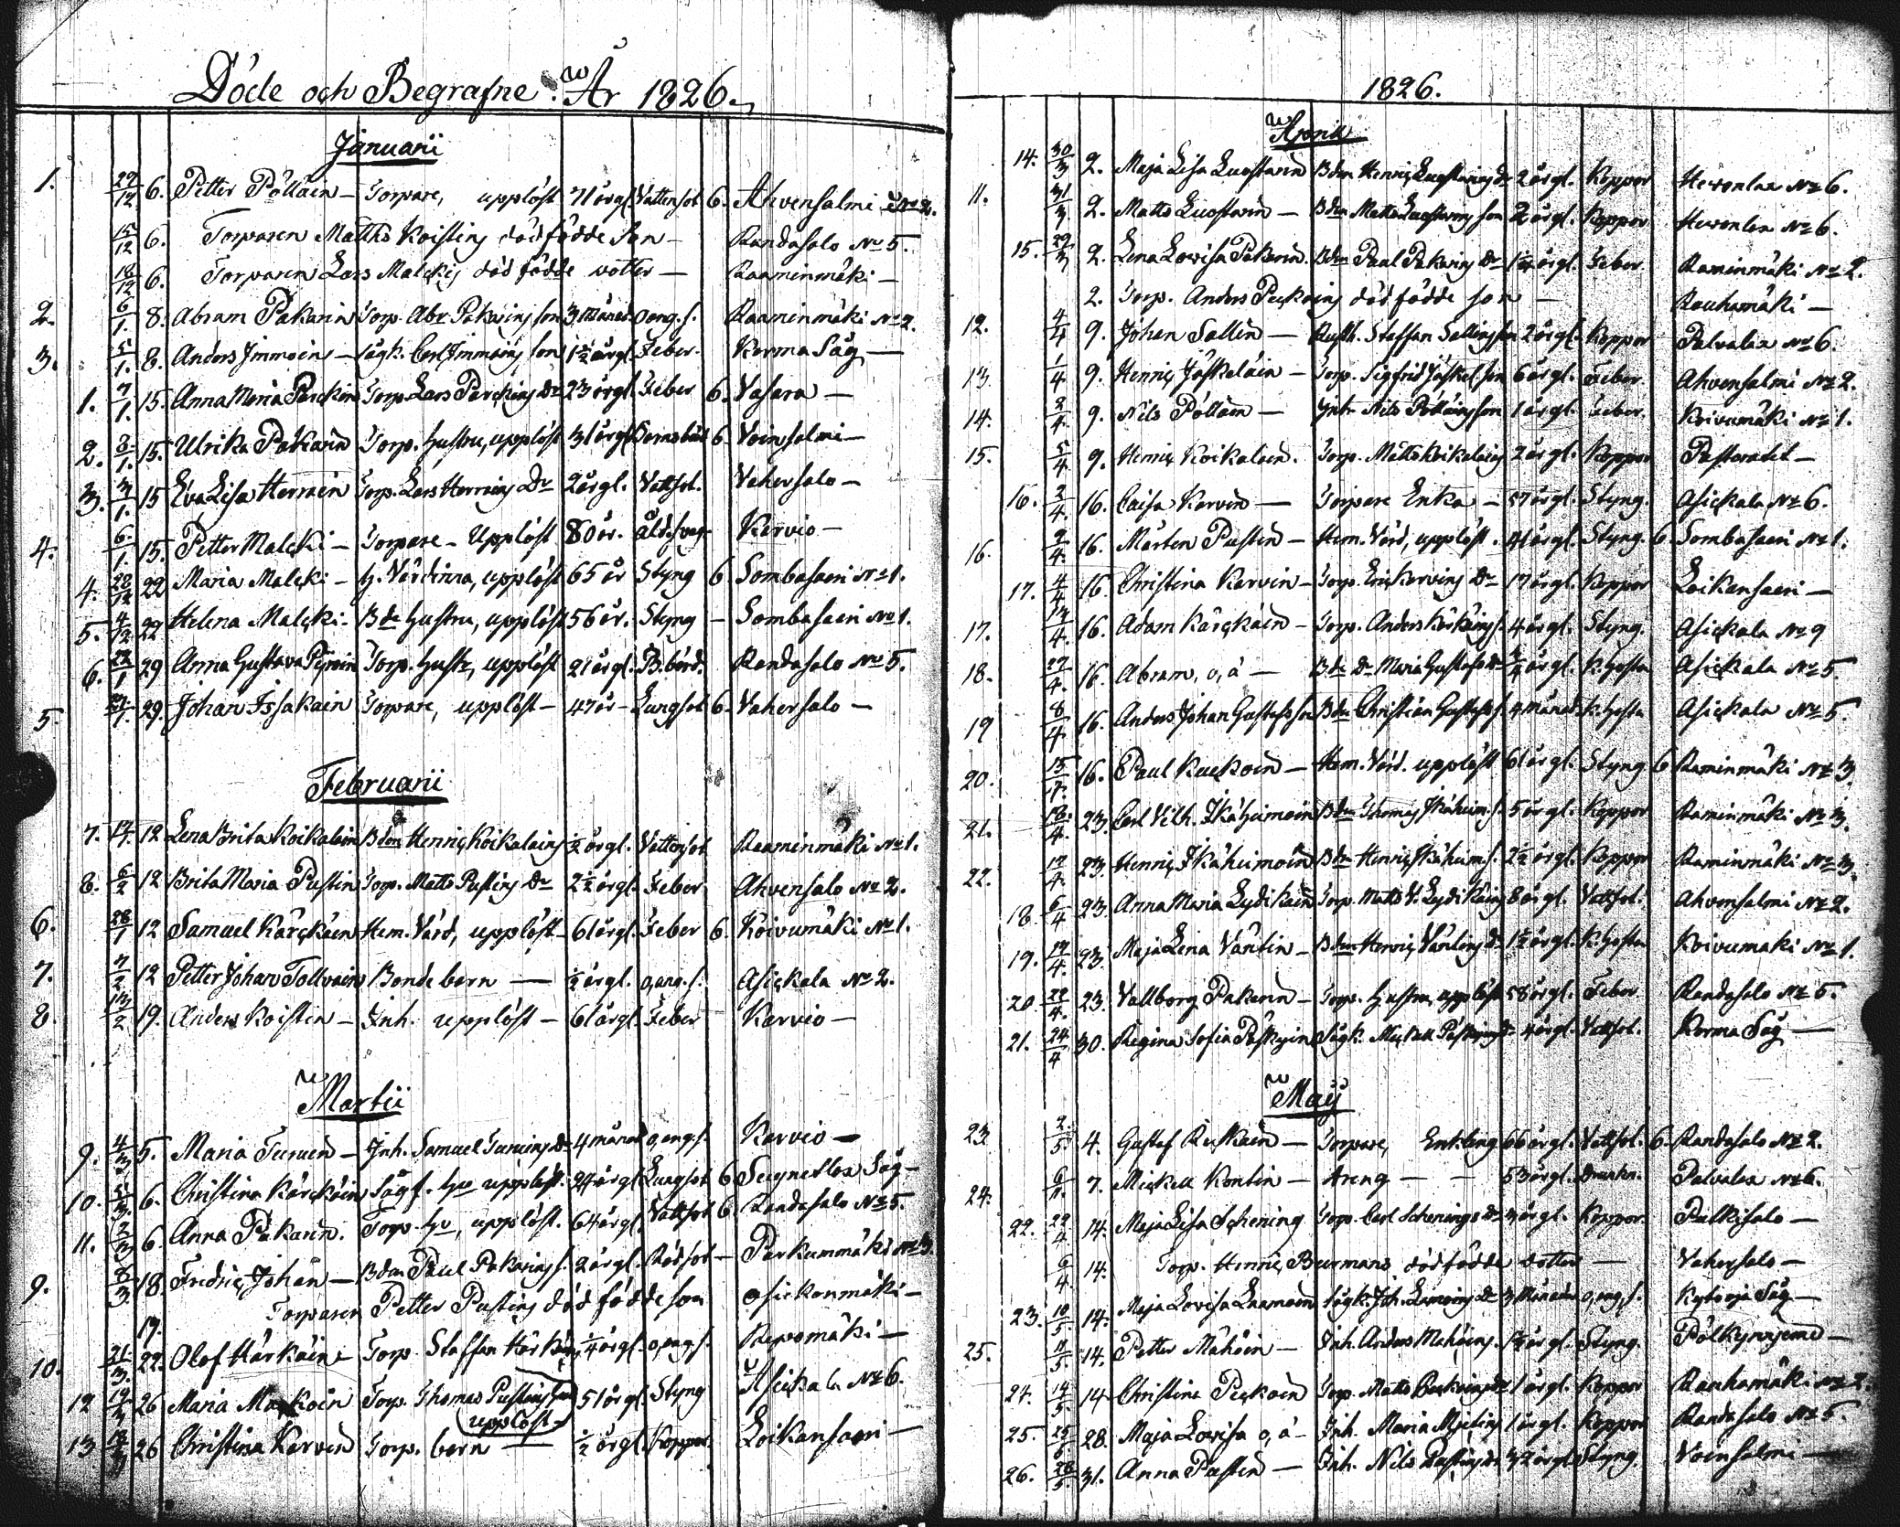 Döde och Begrafne År 1826.
Januarii
1. 29/12 6. Petter Pölläin – Torpare, upplöst 71 årgl. Vattusot 6. Ahvensalmi № 2.
15/12 6. Torparen Matths Koistins dödfödde Son – Randasalo № 5.
18/12 6. Torparen Lars Malckis död födde dotter – Raaminmäki –
2. 6/1. 8. Abram Pakarin Torp. Abr. Pakarins son 3 Månad. oang. s. Raaminmäki № 2.
3. 5/1. 8. Anders Immoin – Sågk. Carl Immoins son 1½ årgl. Feber. Kerma Såg –
1. 7/1. 15. Anna Maria Parckin Torp. Lars Parckins Dr 23 årgl. Feber 6. Vasara –
2. 8/1. 15. Ulrika Pakarin Torp. hustru, upplöst 31 årgl. Barnsbörd 6. Voinsalmi –
3. 3/1. 15 Eva Lisa Herrain Torp. Lars Herrains Dr 2 årgl. Vattsot. Vahersalo –
4. 6/1. 15. Petter Malcki – Torpare – Upplöst 80 år. Åld. svag. Kervio –
4. 22 Maria Malcki – h. Värdinna, upplöst 65 år Styng 6. Sombasaari № 1.
5. 4/12 22 Helena Malcki – Bde hustru, upplöst 56 år. Styng – Sombasaari № 1.
6. 22/1 29 Anna Gustava Torp. hustr, upplöst 21 årgl. B. börd. Randasalo № 5.
5. 29. Johan Issakain Torpare, upplöst – 47 år – Lungsot 6. Vahersalo –
Februarii
7. 12 Lena Brita Koikalain Bdm Henric Koikalains ½ årgl. Vattusot Raaminmäki № 1.
8. 6/2 12 Brita Maria Pustin Torp. Matts Pustins Dr 2½ årgl. Feber Ahvensalo № 2.
6. 28/1 12 Samuel Kärckäin Hem. Värd, upplöst – 61 årgl. Feber 6. Koivumäki № 1.
7. 7/2 12 Petter Johan Tollvain Bonde barn – ½ årgl. o, ang. s. Asickala № 2.
8. 19. Anders Koistin – Inh. upplöst – 61 årgl. Feber Kervio –
Martii
9. 4/3 5. Maria Turuin – Inh. Samuel Turuins Dr 4 månad o, ang. s. Kervio –
10. 6. Christina Kärckäin Sågf. hu upplöst. 24 årgl. Lungsot 6 Såg –
11. 2/3 6 Anna Pakarin. Torp. hu, upplöst. 64 årgl. Vattsot 6. Randasalo № 5.
9. 8/3. 18. Fredric Johan – Bdm Paul Pakarins s. 2 årgl. Rödsot – Parkummäki № 3.
19. Torparen Petter Pustins död födde son Asickonmäki –
10. 21/3. 22. Olof Härkäin – Torp. Staffan Härkäins ¼ årgl. o, ang. s. Repomäki –
12 19/3 26 Maria Torp. Thomas Pustins hu upplöst – 51 årgl. Styng Asickala № 6.
13 26 Christina Kervin Torp. barn – ½ årgl. Koppor. Loikansaari –
1826.
April
14. 30/3 2. Maja Lisa Luostarin Bdm Henric Luostarins Dr 2 årgl. Koppor № 6.
11. 31/3 2. Matts Luostarin – Bdm Matts Luostarins son 2 årgl. Koppor № 6.
15. 29/3 2. Lena Lovisa Pakarin. Bdm Paul Pakarins Dr 1¼ årgl. Feber. Raminmäki № 2.
2. Torp. Anders dödfödde son – Rauhamäki –
12. 4/4 9. Johan Sallin – Rusth. Staffan Sallins son 2 årgl. Koppor Palvalax № 6.
13 1/4 9. Henric Jäskeläin – Torp. Sigfrid Jäskel. son 6 årgl. Feber. Ahvensalmi № 2.
14. 2/4. 9. Nils Pöllain – Inh. Nils Pölläins son 1 årgl. Feber. Koivumäki № 1.
15. 5/4 9. Henric Koikalain. Torp. Matts Koikalains 2 årgl. Koppor Pastoratet –
16. 2/4. 16. Caisa Kervin – Torpare Enka – 57 årgl. Styng. Asickala № 6.
16. 9/4. 16. Mårten Pustin – Hem. Värd, upplöst. 41 årgl. Styng. 6. Sombasaari № 1.
17. 4/4 16. Christina Kervin – Torp. Eric Kervins Dr 17 årgl. Koppor Loikansaari –
17. 14/4. 16. Adam Kärckäin – Torp. Anders Kärkäins s. 4 årgl. Styng. Asickala № 9
18. 16. Abram, o, ä – Bde Dr Maria Gustafs Dr årgl. K. hosta Asickala № 5.
19 8/4 16. Anders Johan Gustafsson Bdm Christian Gustafss. 4 månad. K. hosta Asickala № 5.
20. 15/4. 16. Paul – Hem. Värd. upplöst 61 årgl. Styng 6 Raminmäki № 3.
21. 23. Carl Vilh. Ikäheimoin Bdm Thomas Ikäheim. s. 5 årgl. Koppor Raminmäki № 3.
22. 19/4. 23. Henric Ikäheimoin Bdm Henric Ikäheim. s. 2½ årgl. Koppor Raminmäki № 3.
18. 6/4 23. Anna Maria Lydikäin Torp. Matts V. Lydikäins 8 årgl. Vattsot. Ahvensalmi № 2.
19. 19/4. 23. Maja Lena Väntin – Bdm Henric Väntins Dr 1½ årgl. K. hosta Koivumaki № 1.
20 22/4. 23. Vallborg Pakarin – Torp. hustru upplöst 58 årgl. Feber. Randasalo № 5.
21. 24/4 30. Regina Sofia Sågk. Mickell 4 årgl. Vattsot. Kerma Såg –
Maij
23. 2/5. 4. Gustaf Ruskain – Torpare, Enkling 66 årgl. Vattsot. 6. Randasalo № 2.
24. 7. Mickell Kontin – Dreng – – 53 årgl. Drunkn. Palvalax № 6.
22. 29/4 14. Maja Lisa Schening Torp. Carl Schenings Dr 3 årgl. Koppor. Pulkisalo –
14. Torp. Henric Burmans dödfödde dotter – Vahersalo –
23. 10/5. 14. Maja Lovisa Sågk. Joh. Dr 3 Månader o, ang. s. Kyrsyä Såg –
25. 11/5. 14. Petter Mähöin – Inh. Anders Mähöins. 1¾ årgl. Styng.
24. 14/5. 14 Christina Torp. Matts 1 årgl. Koppor Rauhamäki № 2.
25. 28. Maja Lovisa o, ä – Inh. Maria 1 årgl. Koppor Randasalo № 5.
26. 28/5. 31. Anna Pustin – Inh. Nils Pustins Dr 32 årgl. Styng. Voinsalmi –